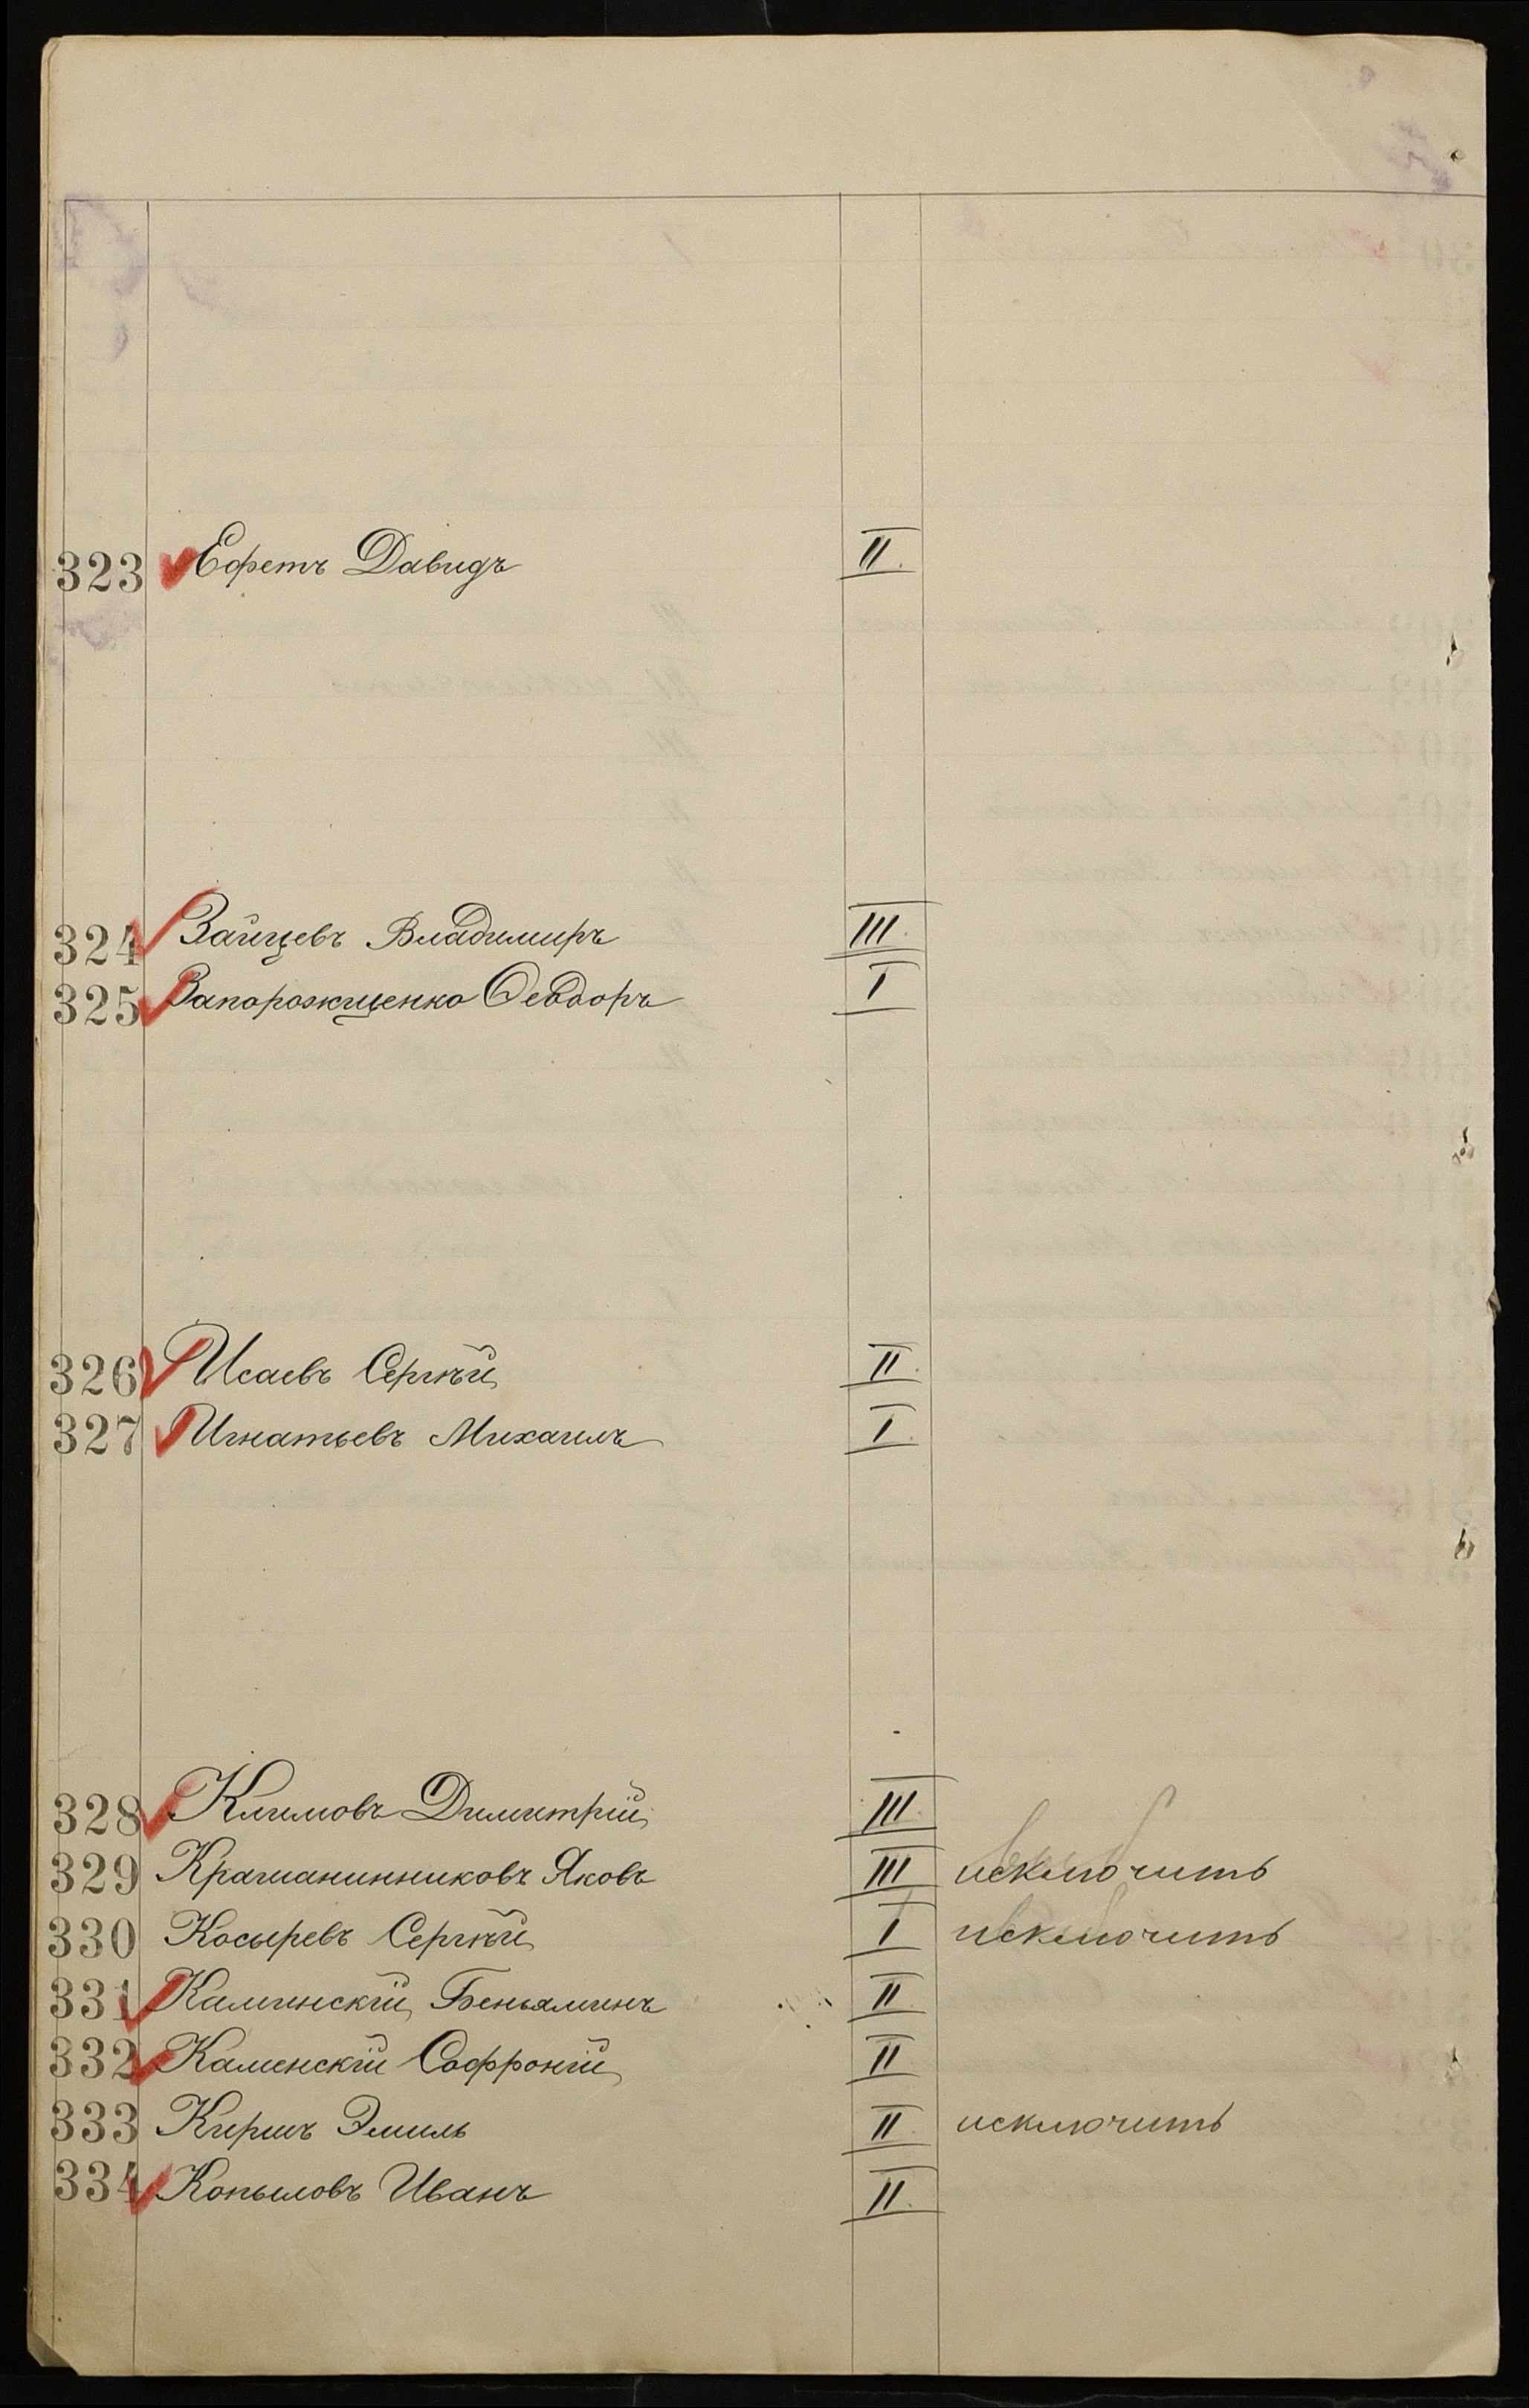 323 Ефетъ Давидъ II.
324 Зайцевъ Владимиръ III.
325 Запорожщенко Ѳеодоръ I
326 Исаевъ Сергѣй II.
327 Игнатьевъ Михаилъ I.
328 Климовъ Димитрій III.
329 Крашанинниковъ Яковъ III исключить
330 Косыревъ Сергѣй I исключить
331 Каминскій Беньяминъ II
332 Каменскій Софроній II
333 Киршъ Эмиль II исключить
334 Копыловъ Иванъ II.